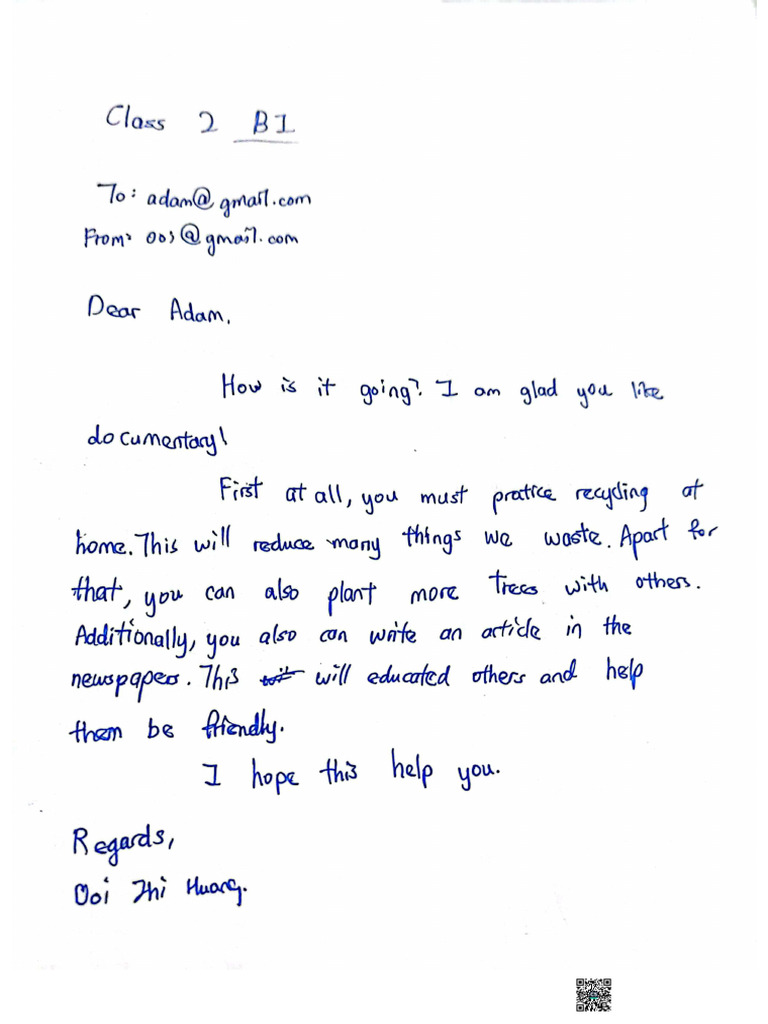 Class 2 B1
To: adam@gmail.com
From: ooi@gmail.com
Dear Adam,
How is it going? I am glad you like
documentary!
First at all, you must pratice recycling at
home. This will reduce many things we waste. Apart for
that, you can also plant more trees with others.
Additionally, you also can write an article in the
newspapers. This will educated others and help
them be friendly.
I hope this help you.
Regards,
Ooi Zhi Huang.